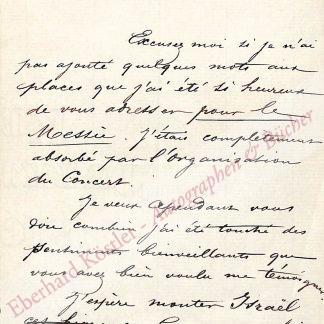 Excusez moi si je n'ai
pas ajouté quelques mots aux
places que j'ai été si heureux
de vous adresser pour le
Messie. J'étais complètement
absorbé par l'organisation
du Concert.
Je veux cependant vous
dire combien j'ai été touché des
sentiments bienveillants que
vous avez bien voulu me témoigner
J'espère monter Israël
Eberhard Köstler - Autographen & Bücher